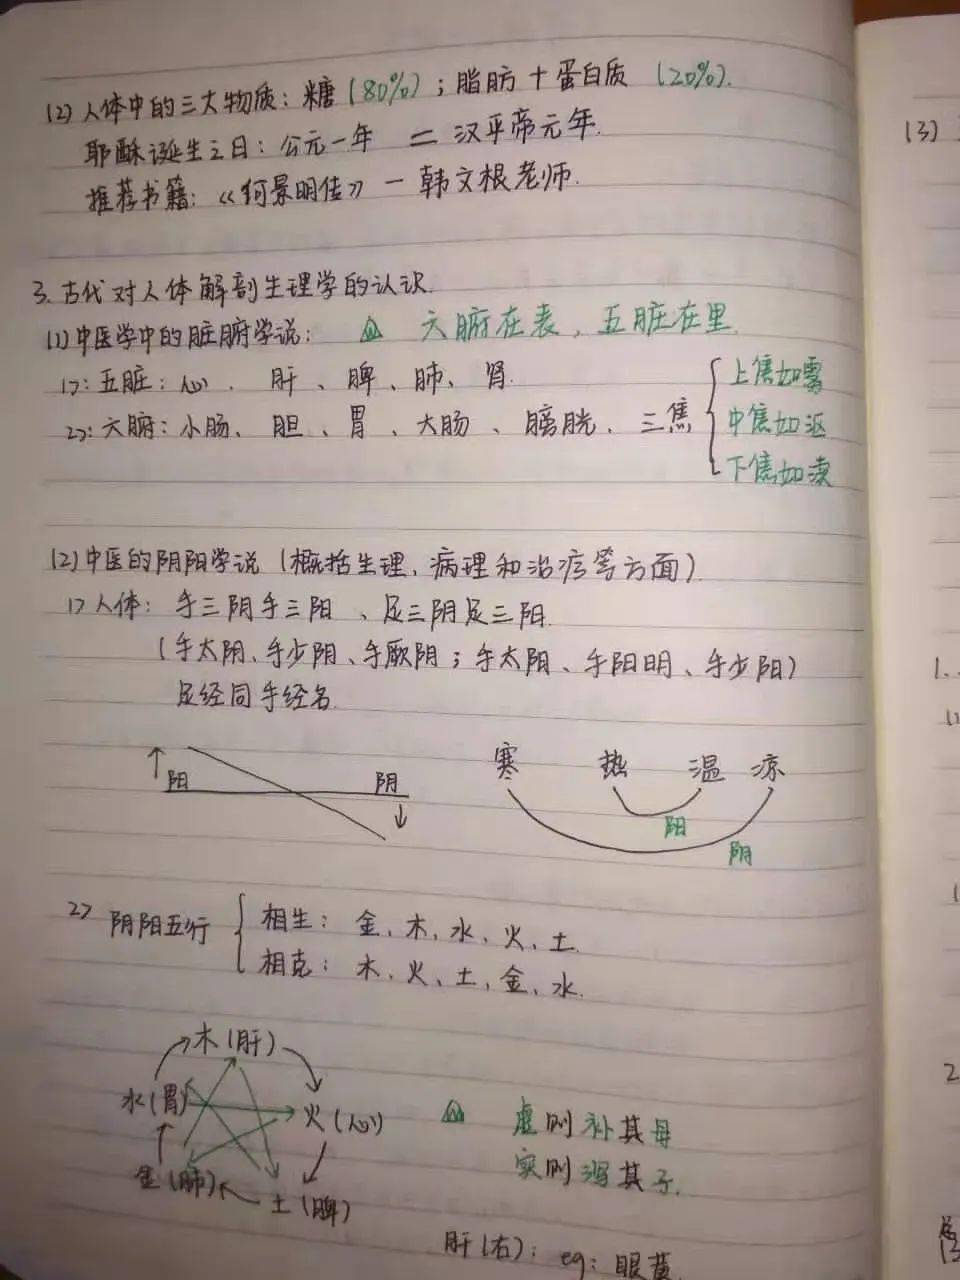 (2) 人体中的三大物质：糖(80%)；脂肪+蛋白质 (20%).
耶酥诞生之日：公元一年 = 汉平帝元年.
推荐书籍：《何景明传》— 韩文根老师.
3. 古代对人体解剖生理学的认识.
(1) 中医学中的脏腑学说： 六腑在表，五脏在里.
1>: 五脏：心、肝、脾、肺、肾.
2>: 六腑：小肠、胆、胃、大肠、膀胱、三焦
上焦如雾
中焦如沤
下焦如渎
(2) 中医的阴阳学说 (概括生理、病理和治疗等方面)
1> 人体：手三阴手三阳、足三阴足三阳.
(手太阴、手少阴、手厥阴；手太阳、手阳明、手少阳)
足经同手经名.
↑阳 阴↓
寒 热 温 凉
阳
阴
2> 阴阳五行
相生：金、木、水、火、土.
相克：木、火、土、金、水.
木(肝)
水(胃) 火(心)
金(肺) 土(脾)
虚则补其母
实则泻其子.
肝(右)：eg：眼黄.
(3)
1.
(1)
2